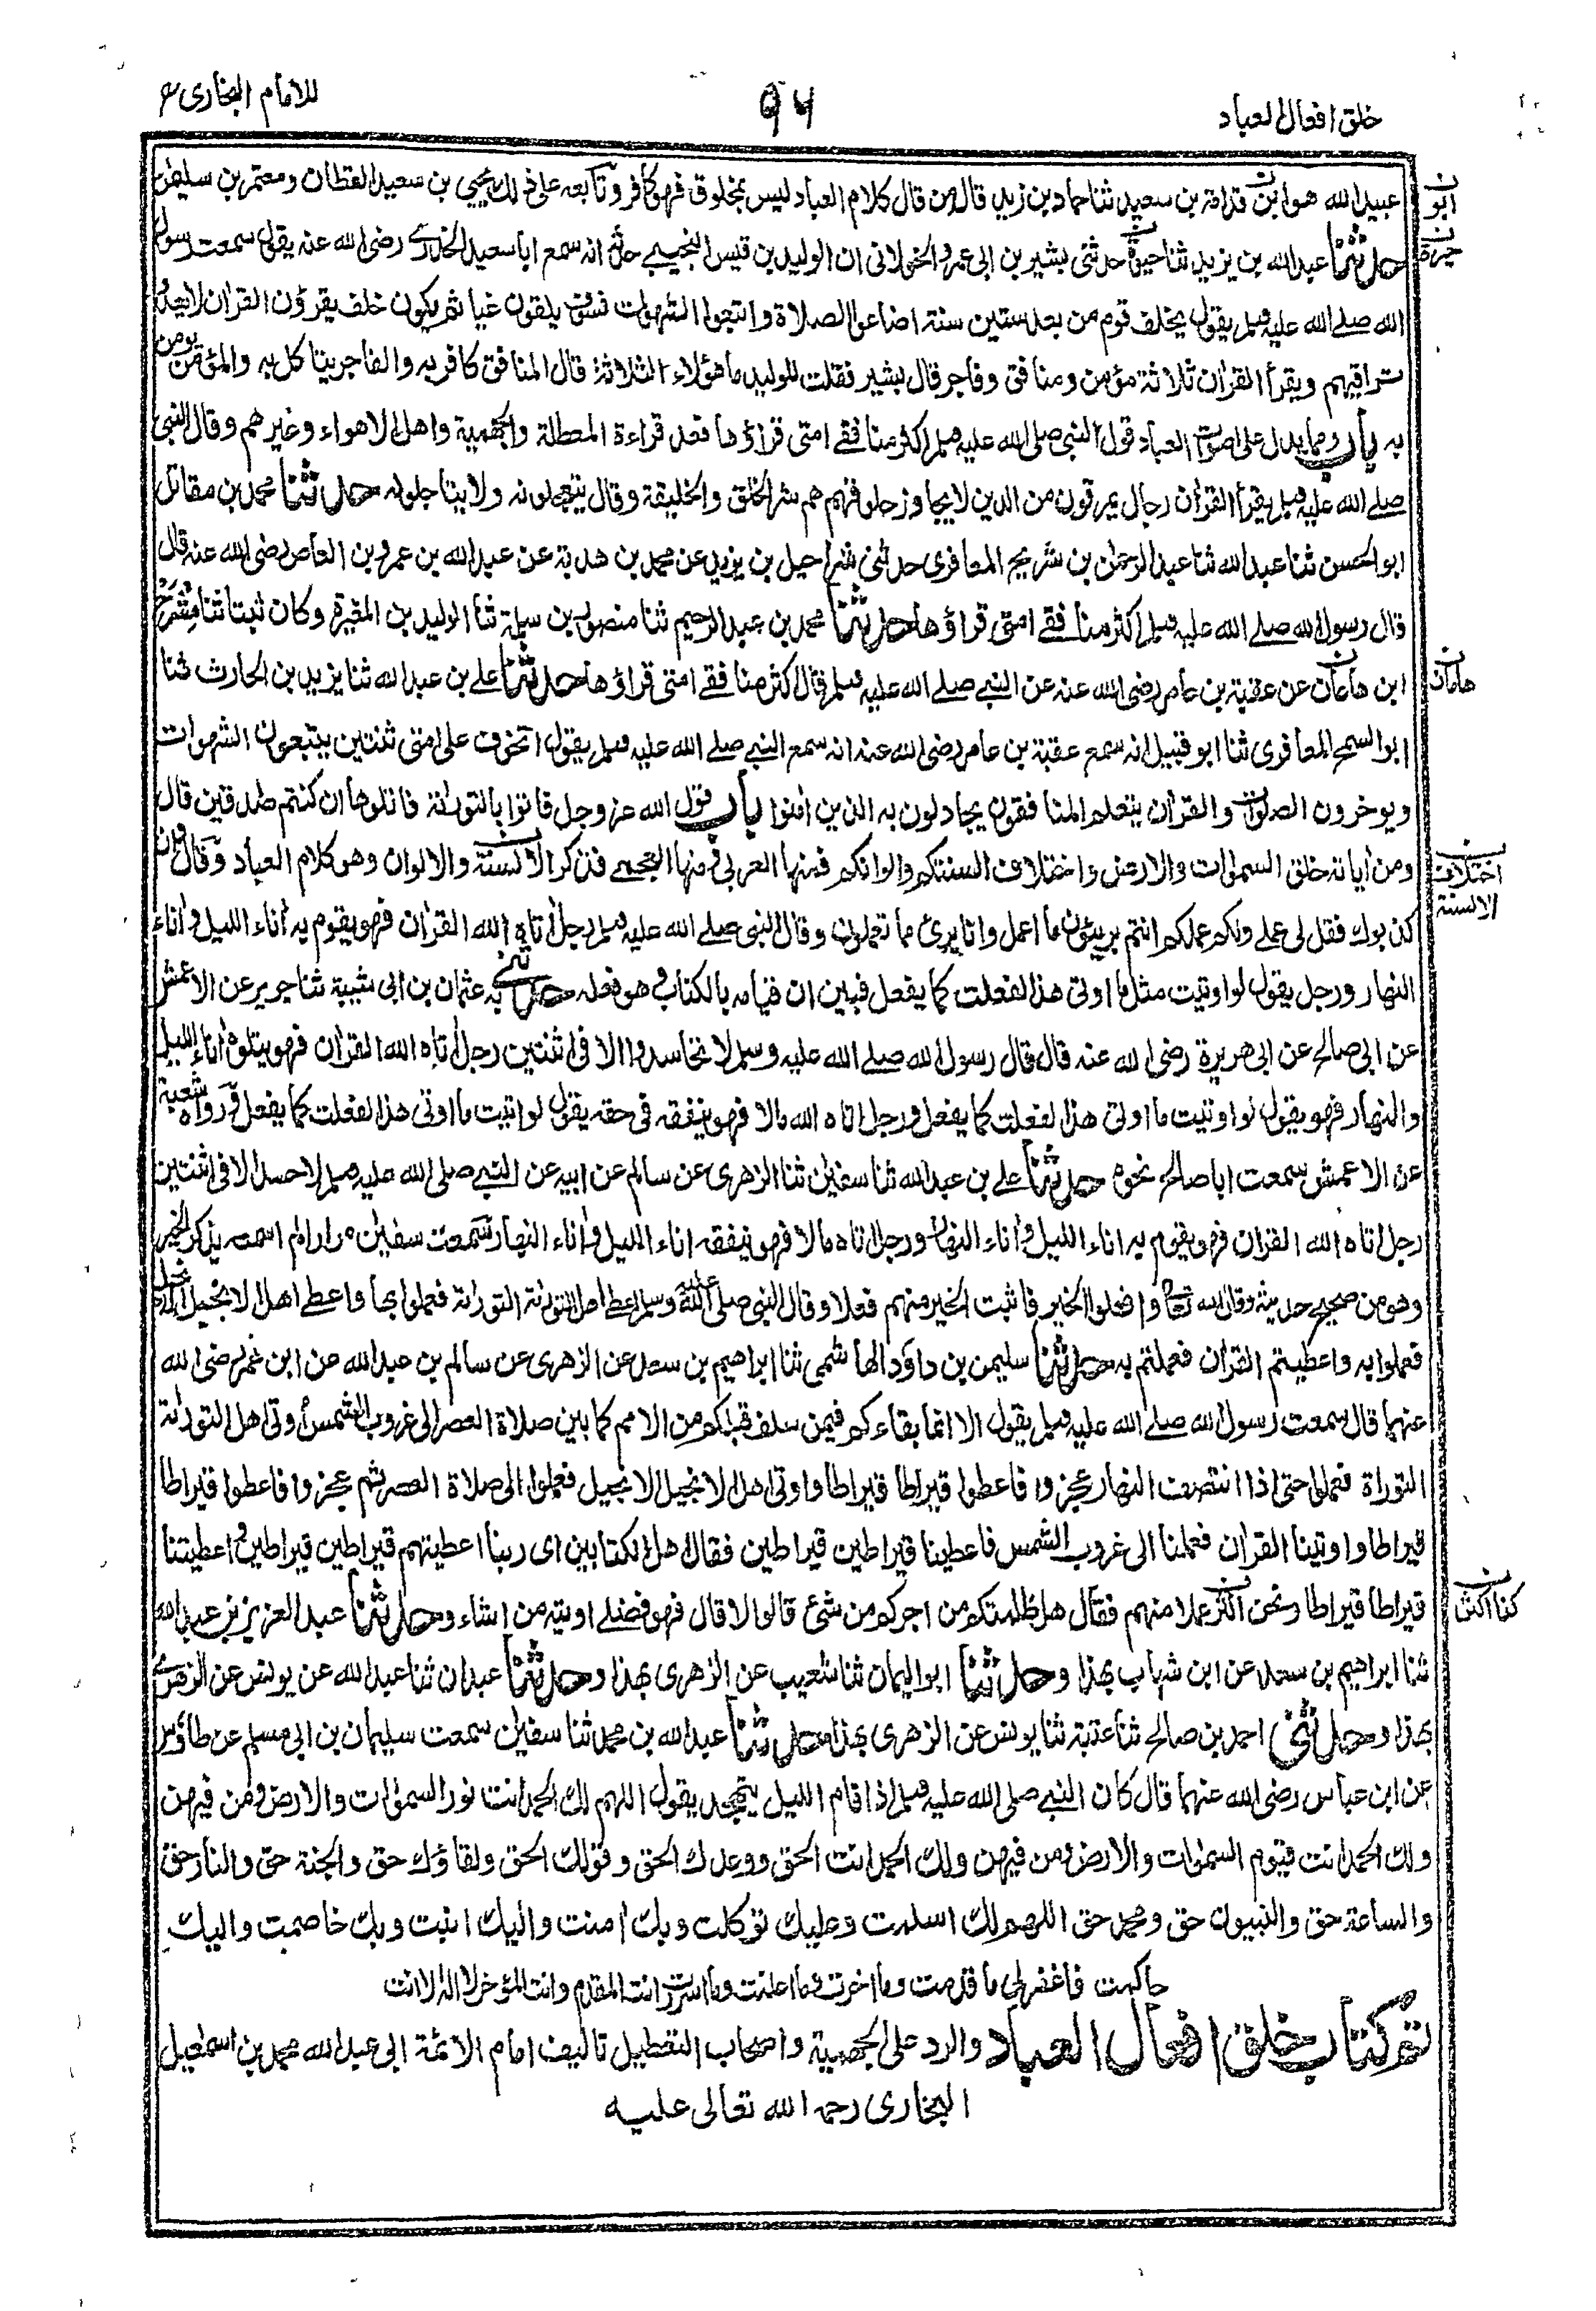 خلق افعال العباد
٩٦
للامام البخاری رح
عبيد الله هو ابن قدامة بن سعيد ثنا حماد بن زيد قال من قال كلام العباد ليس بمخلوق فهو كافر وتابعه على ذلك يحيى بن سعيد القطان ومعتمر بن سليمن
حدثنا عبد الله بن يزيد ثنا حيوة حدثنى بشير بن ابى عمرو الخولانى ان الوليد بن قيس التجيبى حدثه انه سمع ابا سعيد الخدرى رضى الله عنه يقول سمعت رسول
الله صلے الله عليه وسلم يقول يخلف قوم من بعد ستين سنة اضاعوا الصلاة واتبعوا الشهوات فسوف يلقون غيا ثم يكون خلف يقرؤن القران لا يعدو
تراقيهم ويقرأ القران ثلاثة مؤمن ومنافق وفاجر قال بشير فقلت للوليد ما هؤلاء الثلاثة قال المنافق كافر به والفاجر يتاكل به والمؤمن يومن
به باب وما يدل على اصوات العباد قول النبى صلى الله عليه وسلم اكثر منافقے امتى قراؤها فعد قراءة المعطلة والجهمية واهل الاهواء وغيرهم وقال النبى
صلے الله عليه وسلم يقرأ القران رجال يمرقون من الدين لا يجاوز حلوقهم هم شر الخلق والخليقة وقال يتعجلونه ولا يتاجلونه حدثنا محمد بن مقاتل
ابو الحسن ثنا عبد الله ثنا عبد الرحمن بن شريح المعافرى حدثنى شراحيل بن يزيد عن محمد بن هدية عن عبد الله بن عمرو بن العاص رضى الله عنه قال
قال رسول الله صلے الله عليه وسلم اكثر منافقے امتى قراؤها حدثنا محمد بن عبد الرحيم ثنا منصور بن سلمة ثنا الوليد بن المغيرة وكان ثبتا ثنا مشرح
ابن هاعان عن عقبة بن عامر رضى الله عنه عن النبے صلے الله عليه وسلم قال اكثر منافقے امتى قراؤها حدثنا على بن عبد الله ثنا يزيد بن الحارث ثنا
ابو السمح المعافرى ثنا ابو قبيل انه سمع عقبة بن عامر رضى الله عنه انه سمع النبے صلے الله عليه وسلم يقول اتخوف على امتى ثنتين يتبعون الشهوات
ويوخرون الصلوات والقران يتعلمه المنافقون يجادلون به الذين امنوا باب قول الله عز وجل فاتوا بالتوراة فاتلوها ان كنتم صدقين قال
ومن اياته خلق السموات والارض واختلاف السنتكم والوانكم فمنها العربى ومنها العجمے فذكر الالسنة والالوان وهو كلام العباد وقال وان
كذبوك فقل لى عملے ولكم عملكم انتم بريئون مما اعمل وانا برئ مما تعملون وقال النبى صلے الله عليه وسلم رجل اتاه الله القران فهو يقوم به اناء الليل واناء
النهار ورجل يقول لو اوتيت مثل ما اوتى هذا لفعلت كما يفعل فبين ان قيامه بالكتاب هو فعله حدثنے به عثمان بن ابى شيبة ثنا جرير عن الاعمش
عن ابى صالح عن ابى هريرة رضى الله عنه قال قال رسول الله صلے الله عليه وسلم لا تحاسدوا الا فى اثنتين رجل اتاه الله القران فهو يتلوه اناء الليل
والنهار فهو يقول لو اوتيت ما اوتى هذا لفعلت كما يفعل ورجل اتاه الله مالا فهو ينفقه فى حقه يقول لو اتيت ما اوتى هذا لفعلت كما يفعل ورواه شعبة
عن الاعمش سمعت ابا صالح نحوه حدثنا على بن عبد الله ثنا سفين ثنا الزهرى عن سالم عن ابيه عن النبے صلى الله عليه وسلم لا حسد الا فى اثنتين
رجل اتاه الله القران فهو يقوم به اناء الليل واناء النهار ورجل اتاه مالا فهو ينفقه اناء الليل واناء النهار سمعت سفين مرارا لم اسمعه يذكر الخبر
وهو من صحيح حديثه وقال الله تعالى وافعلوا الخير فاثبت الخير منهم فعلا وقال النبى صلى الله عليه وسلم اعطى اهل التوراة التوراة فعملوا بها واعطے اهل الانجيل الانجيل
فعملوا به واعطيتم القران فعملتم به حدثنا سليمن بن داود الهاشمى ثنا ابراهيم بن سعد عن الزهرى عن سالم بن عبد الله عن ابن عمر رضى الله
عنهما قال سمعت رسول الله صلے الله عليه وسلم يقول الا انما بقاءكم فيمن سلف قبلكم من الامم كما بين صلاة العصر الى غروب الشمس اوتى اهل التوراة
التوراة فعملوا حتى اذا انتصف النهار عجزوا فاعطوا قيراطا قيراطا واوتى اهل الانجيل الانجيل فعملوا الى صلاة العصر ثم عجزوا فاعطوا قيراطا
قيراطا واوتينا القران فعملنا الى غروب الشمس فاعطينا قيراطين قيراطين فقال اهل الكتابين اى ربنا اعطيتهم قيراطين قيراطين واعطيتنا
قيراطا قيراطا ونحن اكثر عملا منهم فقال هل ظلمتكم من اجركم من شئ قالوا لا قال فهو فضلے اوتيته من اشاء وحدثنا عبد العزيز بن عبد الله
ثنا ابراهيم بن سعد عن ابن شهاب بهذا وحدثنا ابو اليمان ثنا شعيب عن الزهرى بهذا وحدثنا عبدان ثنا عبد الله عن يونس عن الزهرى
بهذا وحدثنى احمد بن صالح ثنا عنبة ثنا يونس عن الزهرى بهذا حدثنا عبد الله بن محمد ثنا سفين سمعت سليمان بن ابى مسلم عن طاؤس
عن ابن عباس رضى الله عنهما قال كان النبے صلى الله عليه وسلم اذا قام الليل يتهجد يقول اللهم لك الحمد انت نور السموات والارض ومن فيهن
ولك الحمد انت قيوم السموات والارض ومن فيهن ولك الحمد انت الحق ووعدك الحق وقولك الحق ولقاؤك حق والجنة حق والنار حق
والساعة حق والنبيون حق ومحمد حق اللهم لك اسلمت وعليك توكلت وبك امنت واليك انبت وبك خاصمت واليك
حاكمت فاغفر لى ما قدمت وما اخرت وما اعلنت وما اسررت انت المقدم وانت المؤخر لا اله الا انت
تم كتاب خلق افعال العباد والرد على الجهمية واصحاب التعطيل تاليف امام الائمة ابى عبد الله محمد بن اسمعيل
البخارى رحمة الله تعالى عليه
ابو
حيوة
هامان
اختلاف
الالسنة
كنا اكثر